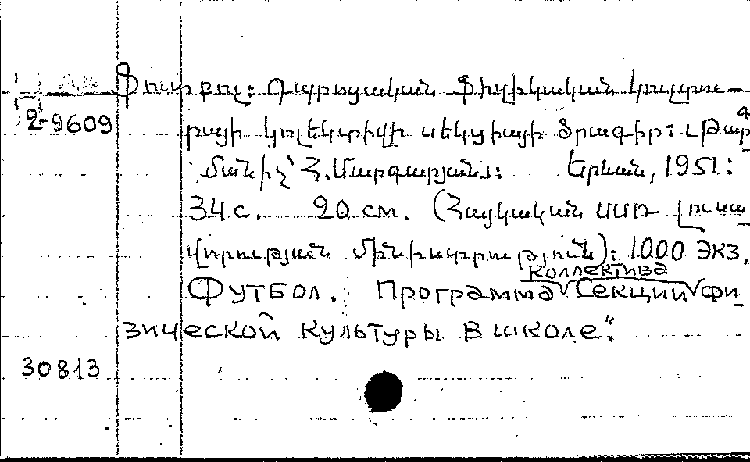 Ֆուտբոլ: Դպրոցական ֆիզիկական կուլտու-
2-9609 րայի կոլեկտիվի սեկցիայի ծրագիր: Թարգ
մանիչ՝ Հ. Մարգարյան: Երևան, 1951:
34 с. 20 см. (Հայկական ՍՍՌ լուսա
վորության մինիստրություն): 1000 экз.
коллектива
Футбол. Программа секции фи
зической культуры в школе".
30813